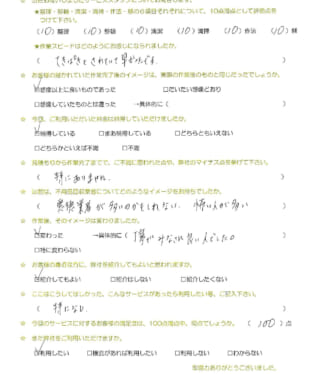 ★整理・整頓・清潔・清掃・作法・躾の6項目それぞれについて、10点満点として評価点を
つけて下さい。
(10)整理 (10)整頓 (10)清潔 (10)清掃 (10)作法 (10)躾
★作業スピードはどのようにお感じになられましたか。
( てきぱきとされていて早かったです。 )
☆ お客様の描かれていた作業完了後のイメージは、実際の作業後のものと同じだったでしょうか。
☑想像以上に良いものであった □だいたい想像どおり
□想像していたものとは違った →具体的に( )
☆ 今回、ご利用いただいた料金は納得していただけましたか。
☑納得している □まあ納得している □どちらともいえない
□どちらかといえば不満 □不満
☆ 見積もりから作業完了までで、ご不満に思われた点や、弊社のマイナス点を挙げて下さい。
( 特にありません。 )
☆ 以前は、不用品回収業者についてどのようなイメージをお持ちでしたか。
( 悪徳業者が多いのかもしれない。怖い人が多い )
☆ 作業後、そのイメージは変わりましたか。
☑変わった →具体的に( みなさん良い人でした。 )
□特に変わらない
☆ お客様の身近な方に、弊社を紹介してもよいと思われますか。
☑紹介してもよい □紹介はしない □紹介したくない
☆ ここはこうしてほしかった、こんなサービスがあったら利用したい等、ご記入下さい。
( 特になし )
☆ 今回のサービスに対するお客様の満足度は、100点満点中、何点でしょうか。( 100 )点
☆ また弊社をご利用いただけますか。
☑利用したい □機会があれば利用したい □利用しない □わからない
ご協力ありがとうございました。